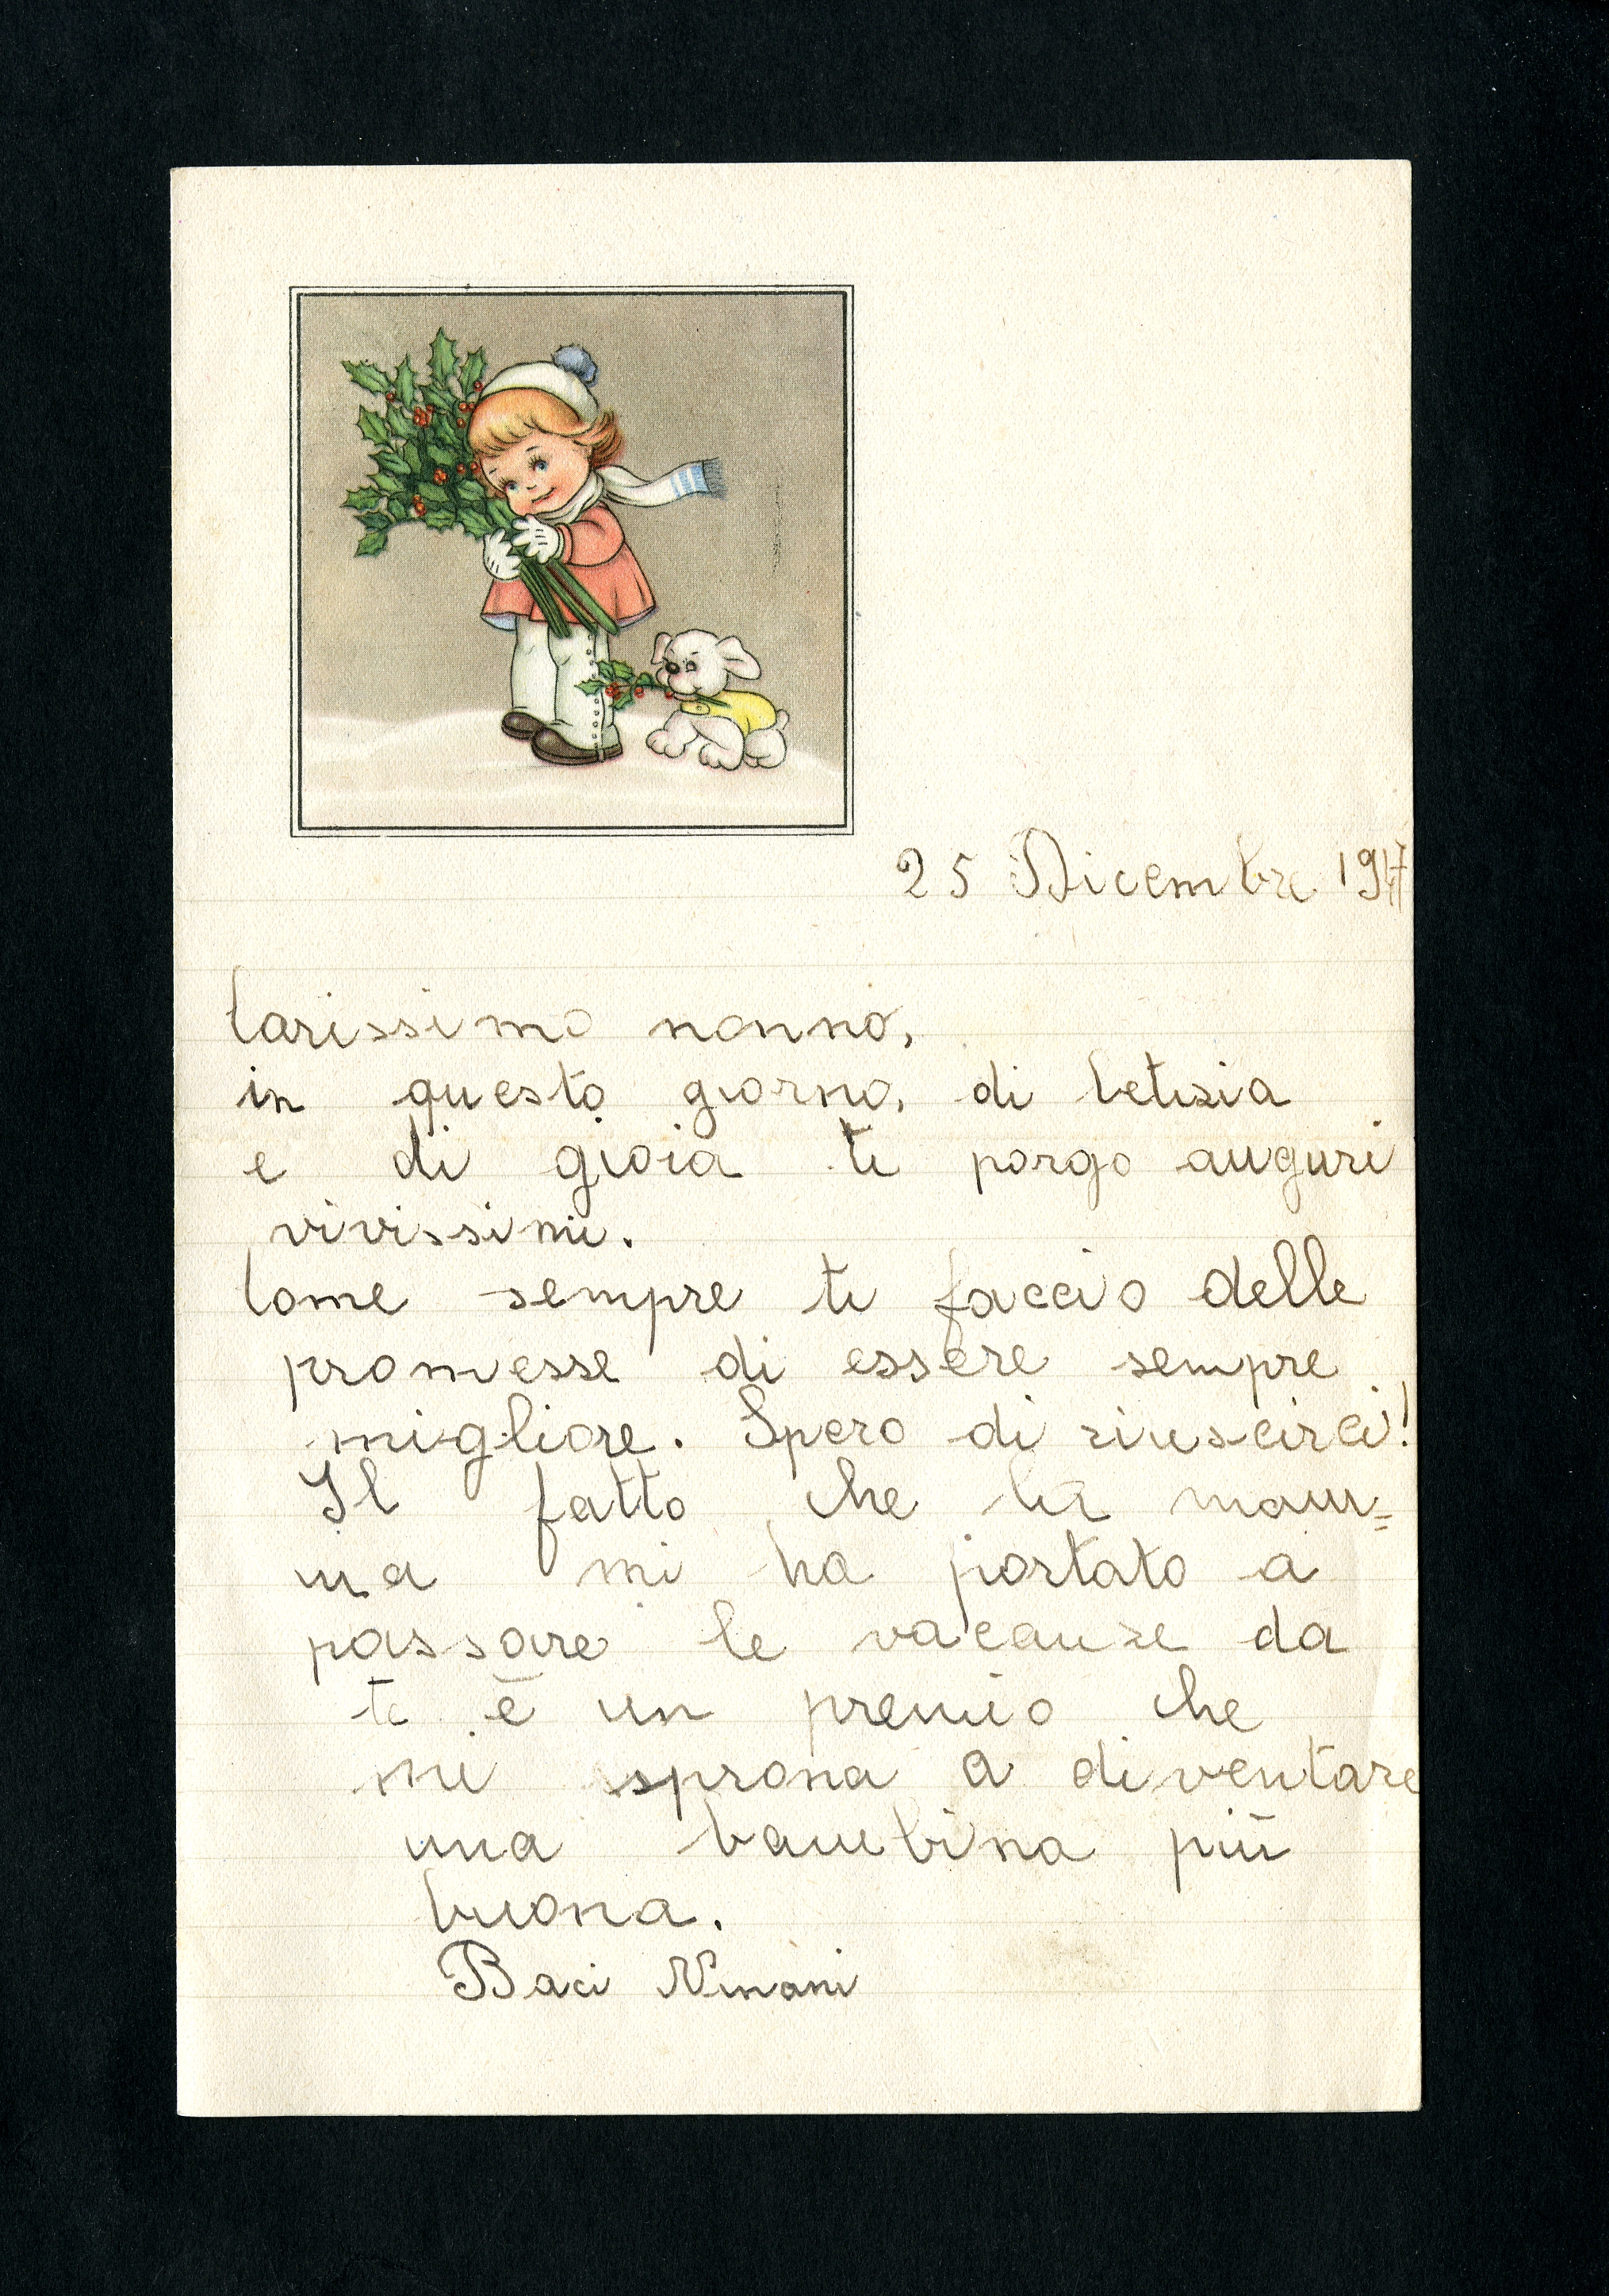 25 Dicembre 1947
Carissimo nonno,
in questo giorno, di letizia
e di gioia ti porgo auguri
vivissimi.
Come sempre ti faccio delle
promesse di essere sempre
migliore. Spero di riuscirci!
Il fatto che la mam=
ma mi ha portato a
passare le vacanze da
te è un premio che
mi sprona a diventare
una bambina più
buona.
Baci